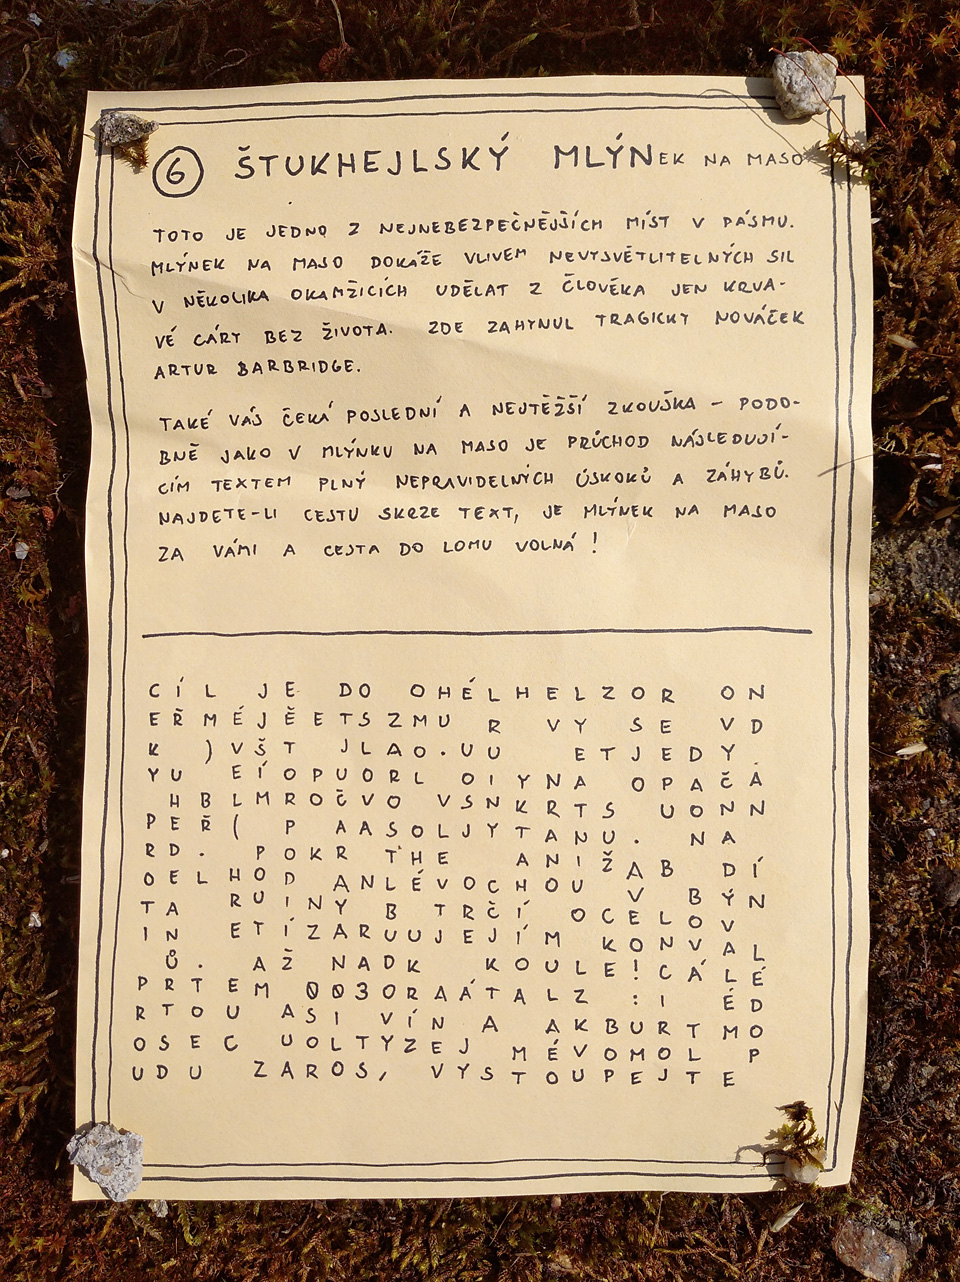 6 ŠTUKHEJLSKÝ MLÝNEK NA MASO
TOTO JE JEDNO Z NEJNEBEZPEČNĚJŠÍCH MÍST V PÁSMU.
MLÝNEK NA MASO DOKÁŽE VLIVEM NEVYSVĚTLITELNÝCH SIL
V NĚKOLIKA OKAMŽICÍCH UDĚLAT Z ČLOVĚKA JEN KRVA-
VÉ CÁRY BEZ ŽIVOTA. ZDE ZAHYNUL TRAGICKY NOVÁČEK
ARTUR BARBRIDGE.
TAKÉ VÁS ČEKÁ POSLEDNÍ A NEJTĚŽŠÍ ZKOUŠKA – PODO-
BNĚ JAKO V MLÝNKU NA MASO JE PRŮCHOD NÁSLEDUJÍ-
CÍM TEXTEM PLNÝ NEPRAVIDELNÝCH ÚSKOKŮ A ZÁHYBŮ.
NAJDETE-LI CESTU SKRZE TEXT, JE MLÝNEK NA MASO
ZA VÁMI A CESTA DO LOMU VOLNÁ!
C Í L J E D O O H É L H E L Z O R O N
E Ř M É J Ě E T S Z M U R V Y S E V D
K ) V Š T J L A O . U U E T J E D Y .
Y U E Í O P U O R L O I Y N A O P A Č Á
H B L M R O Č V O V S N K R T S U O N N
P E Ř ( P A A S O L J Y T A N U . N A
R D . P O K R T H E A N I Ž A B D Í
O E L H O D A N L É V O C H O U V B Ý N
T A R U I N Y B T R Č Í O C E L O V
I N E T Í Z A R U U J E J Í M K O N V A L
Ů . A Ž N A D K K O U L E ! C Á L É
P R T E M 0 0 3 O R A Á T A L Z : I É D
R T O U A S I V Í N A A K B U R T M O
O S E C U O L T Y Z E J M É V O M O L P
U D U Z A R O S , V Y S T O U P E J T E